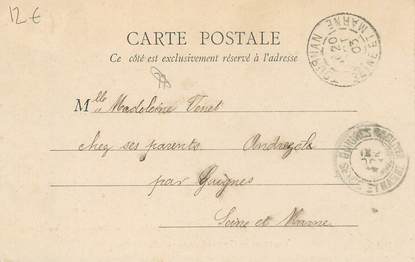 12€
CARTE POSTALE
Ce côté est exclusivement réservé à l'adresse
Mlle Madeleine Venet
chez ses parents. Andrezels
par Guignes
Seine et Marne.
SEINE ET MARNE
20
OCT
03